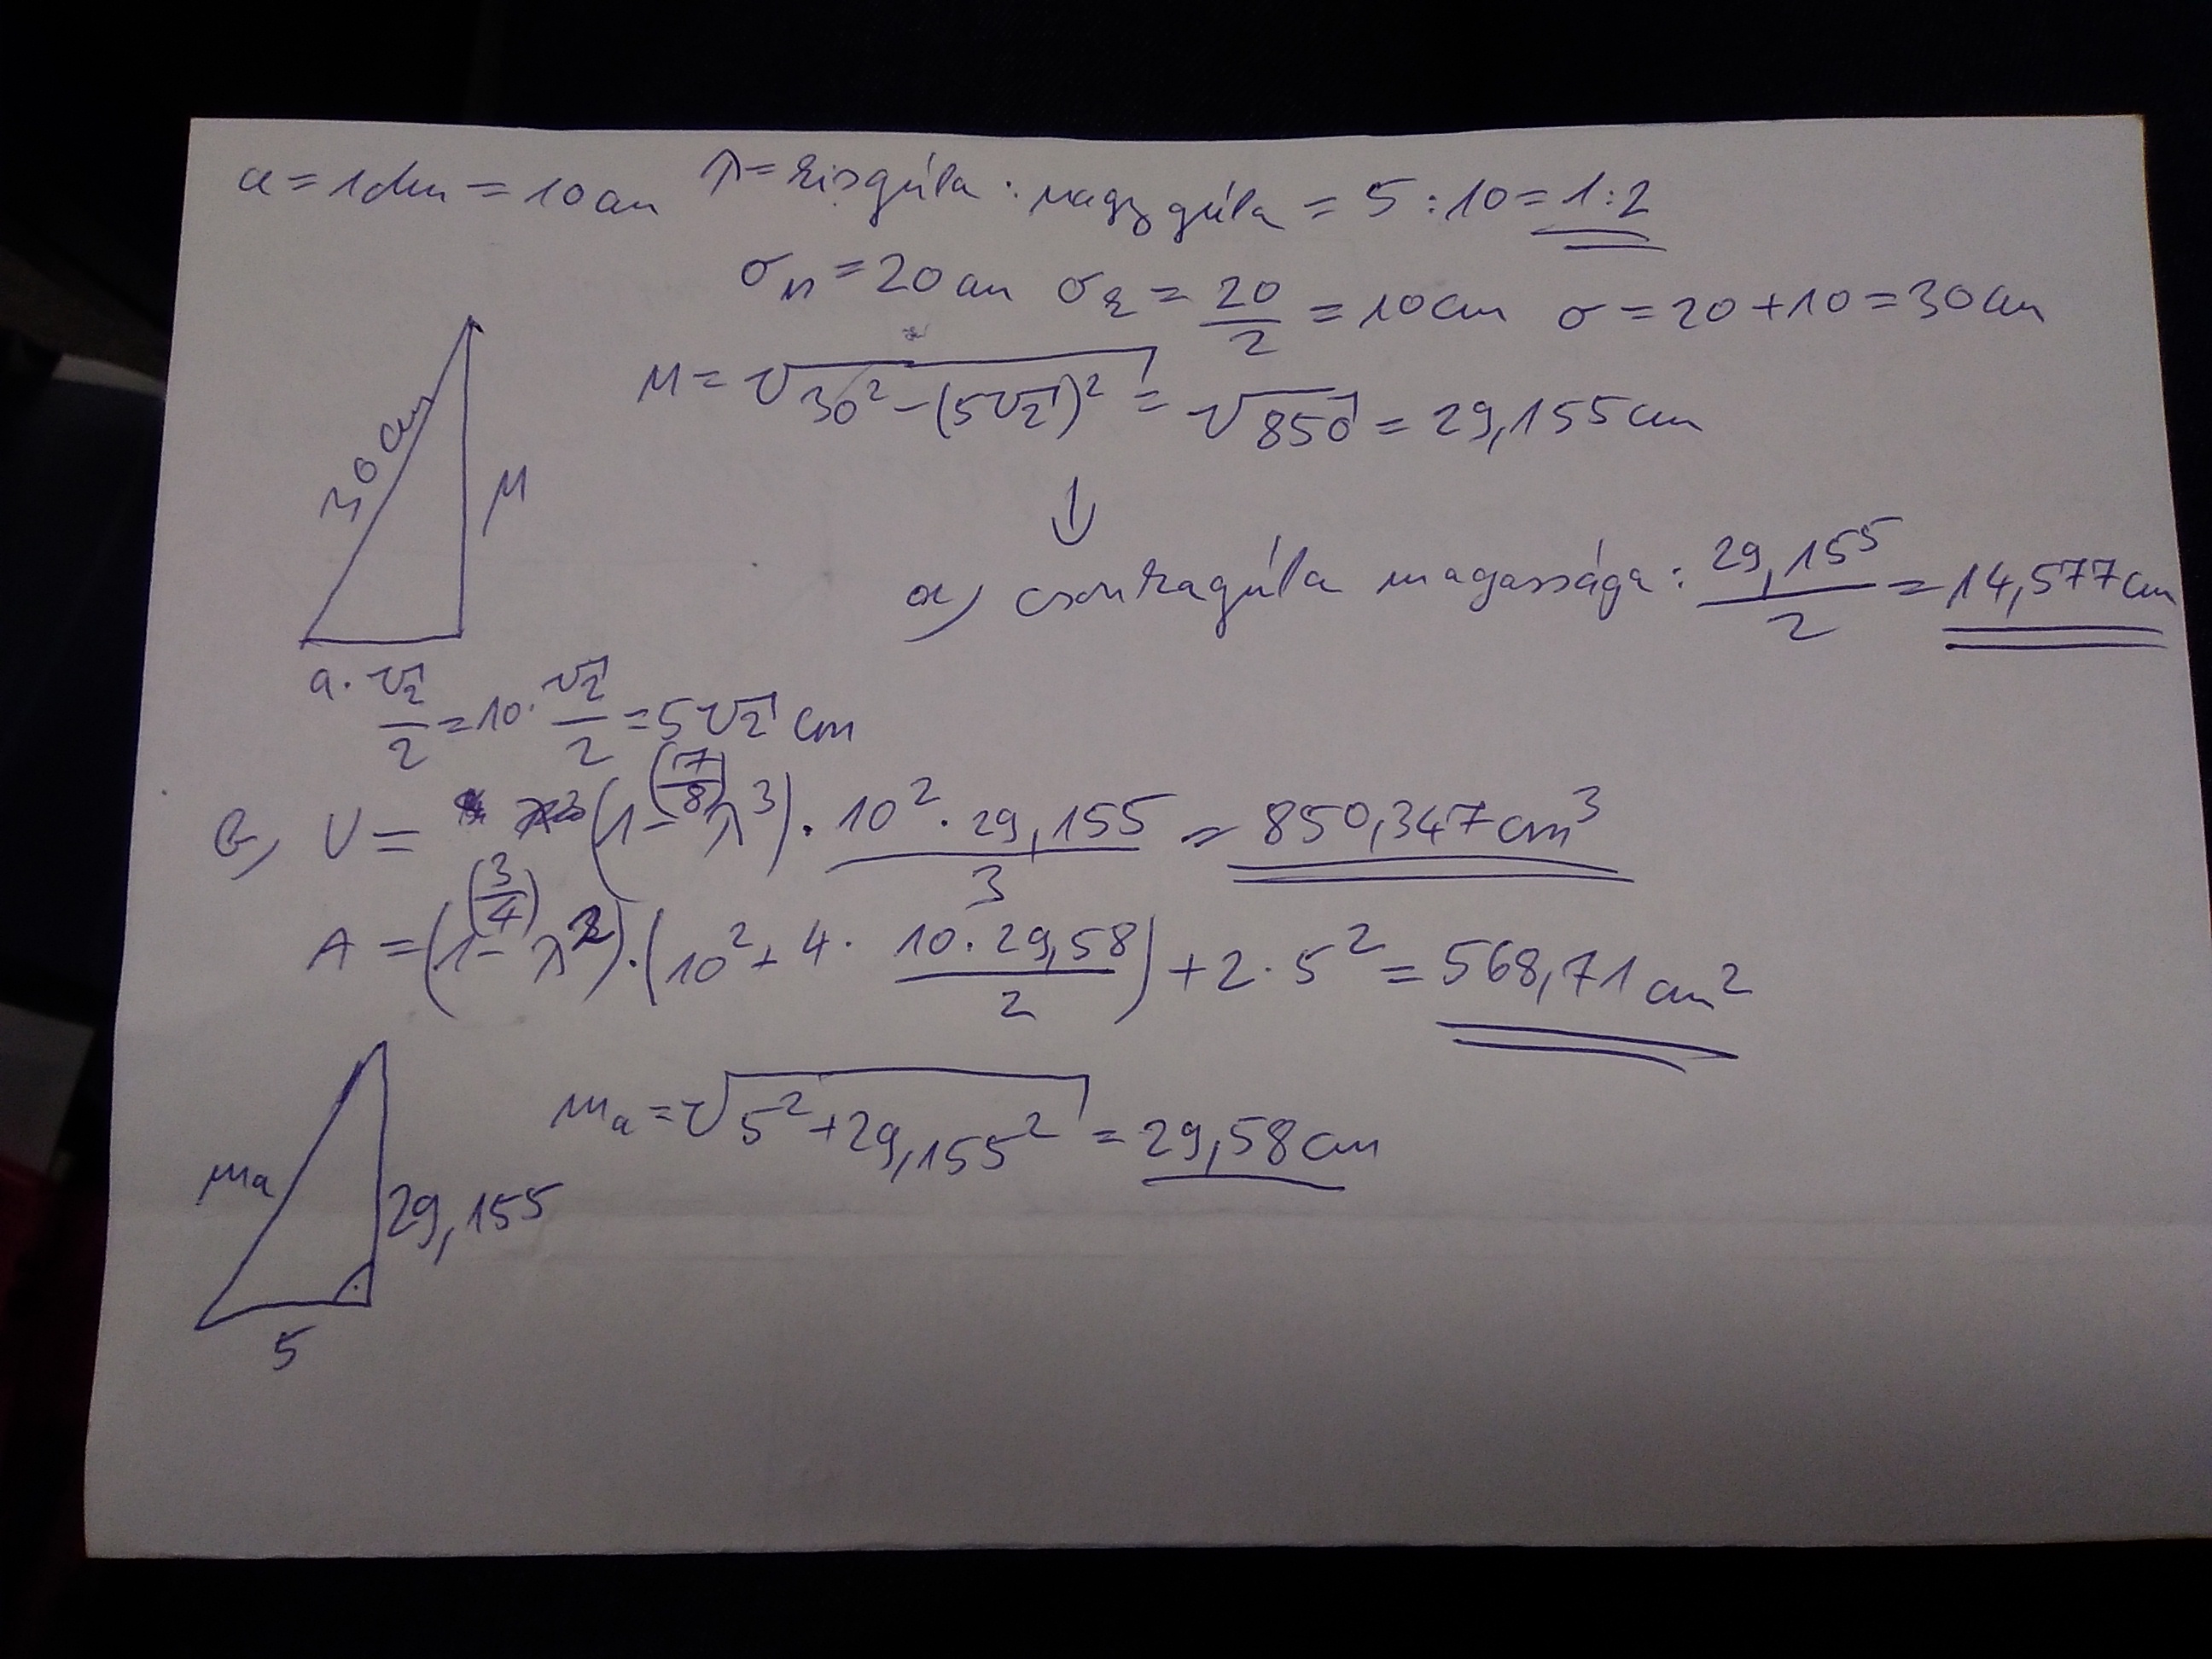 a = 1dm = 10cm λ = kisgúla : nagygúla = 5 : 10 = 1:2
σ_N = 20cm σ_k = 20/2 = 10cm σ = 20 + 10 = 30cm
30cm
M
M = √(30² - (5√2)²) = √850 = 29,155cm
↓
a) csonkagúla magassága: 29,155/2 = 14,577cm
a · √2/2 = 10 · √2/2 = 5√2 cm
(7/8)
b) V = (1 - λ³) · 10² · 29,155/3 = 850,347cm³
(3/4)
A = (1 - λ²) · (10² + 4 · 10 · 29,58/2) + 2 · 5² = 568,71cm²
ma
29,155
5
m_a = √(5² + 29,155²) = 29,58cm